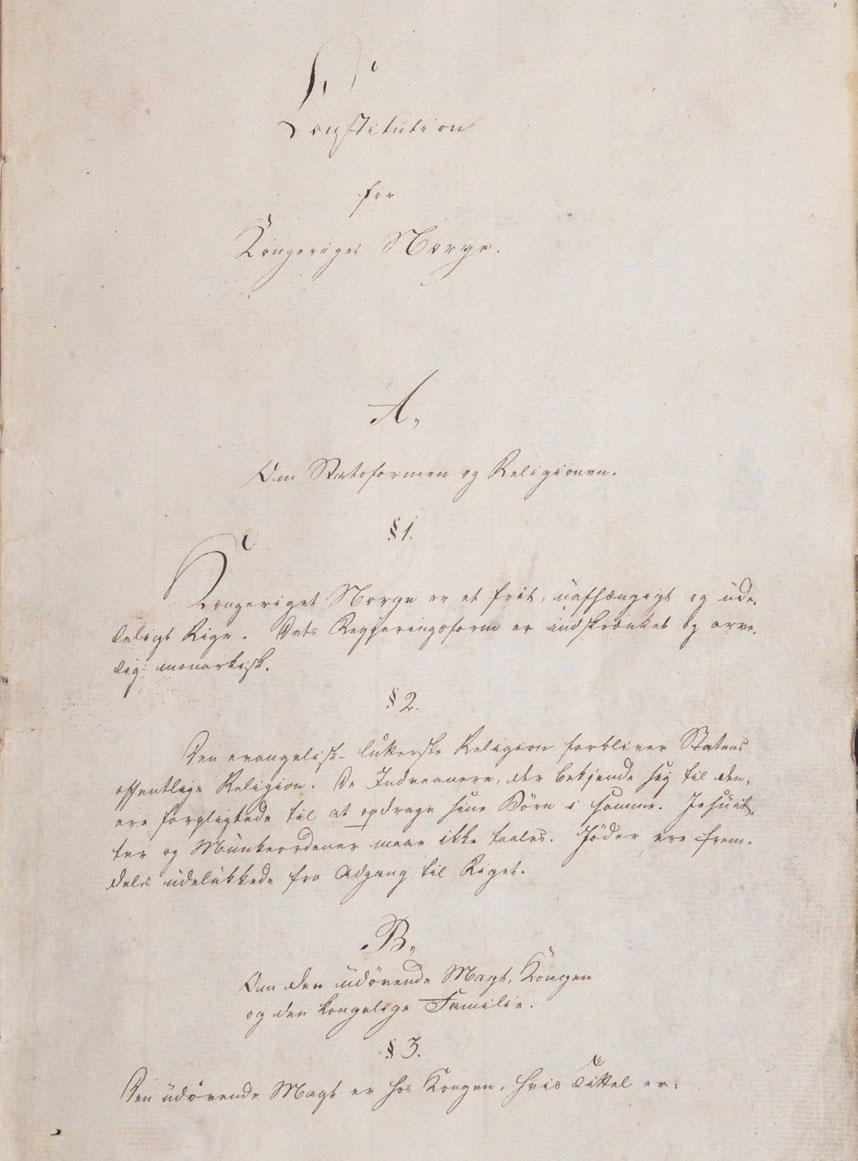 Constitution
for
Kongeriget Norge.
A,
Om Statsformen og Religionen.
§ 1.
Kongeriget Norge er et frit, uafhængigt og ude-
leligt Rige. Dets Regjeringsform er indskrænket og arve-
lig monarkisk.
§ 2.
Den evangelisk-lutherske Religion forbliver Statens
offentlige Religion. De Indvaanere, der bekjende sig til den,
ere forpligtede til at opdrage sine Börn i samme. Jesuit-
ter og Munkeordener maae ikke taales. Jöder ere frem-
deles udelukkede fra Adgang til Riget.
B,
Om den udövende Magt, Kongen
og den kongelige Familie.
§ 3.
Den udövende Magt er hos Kongen, hvis Tittel er: